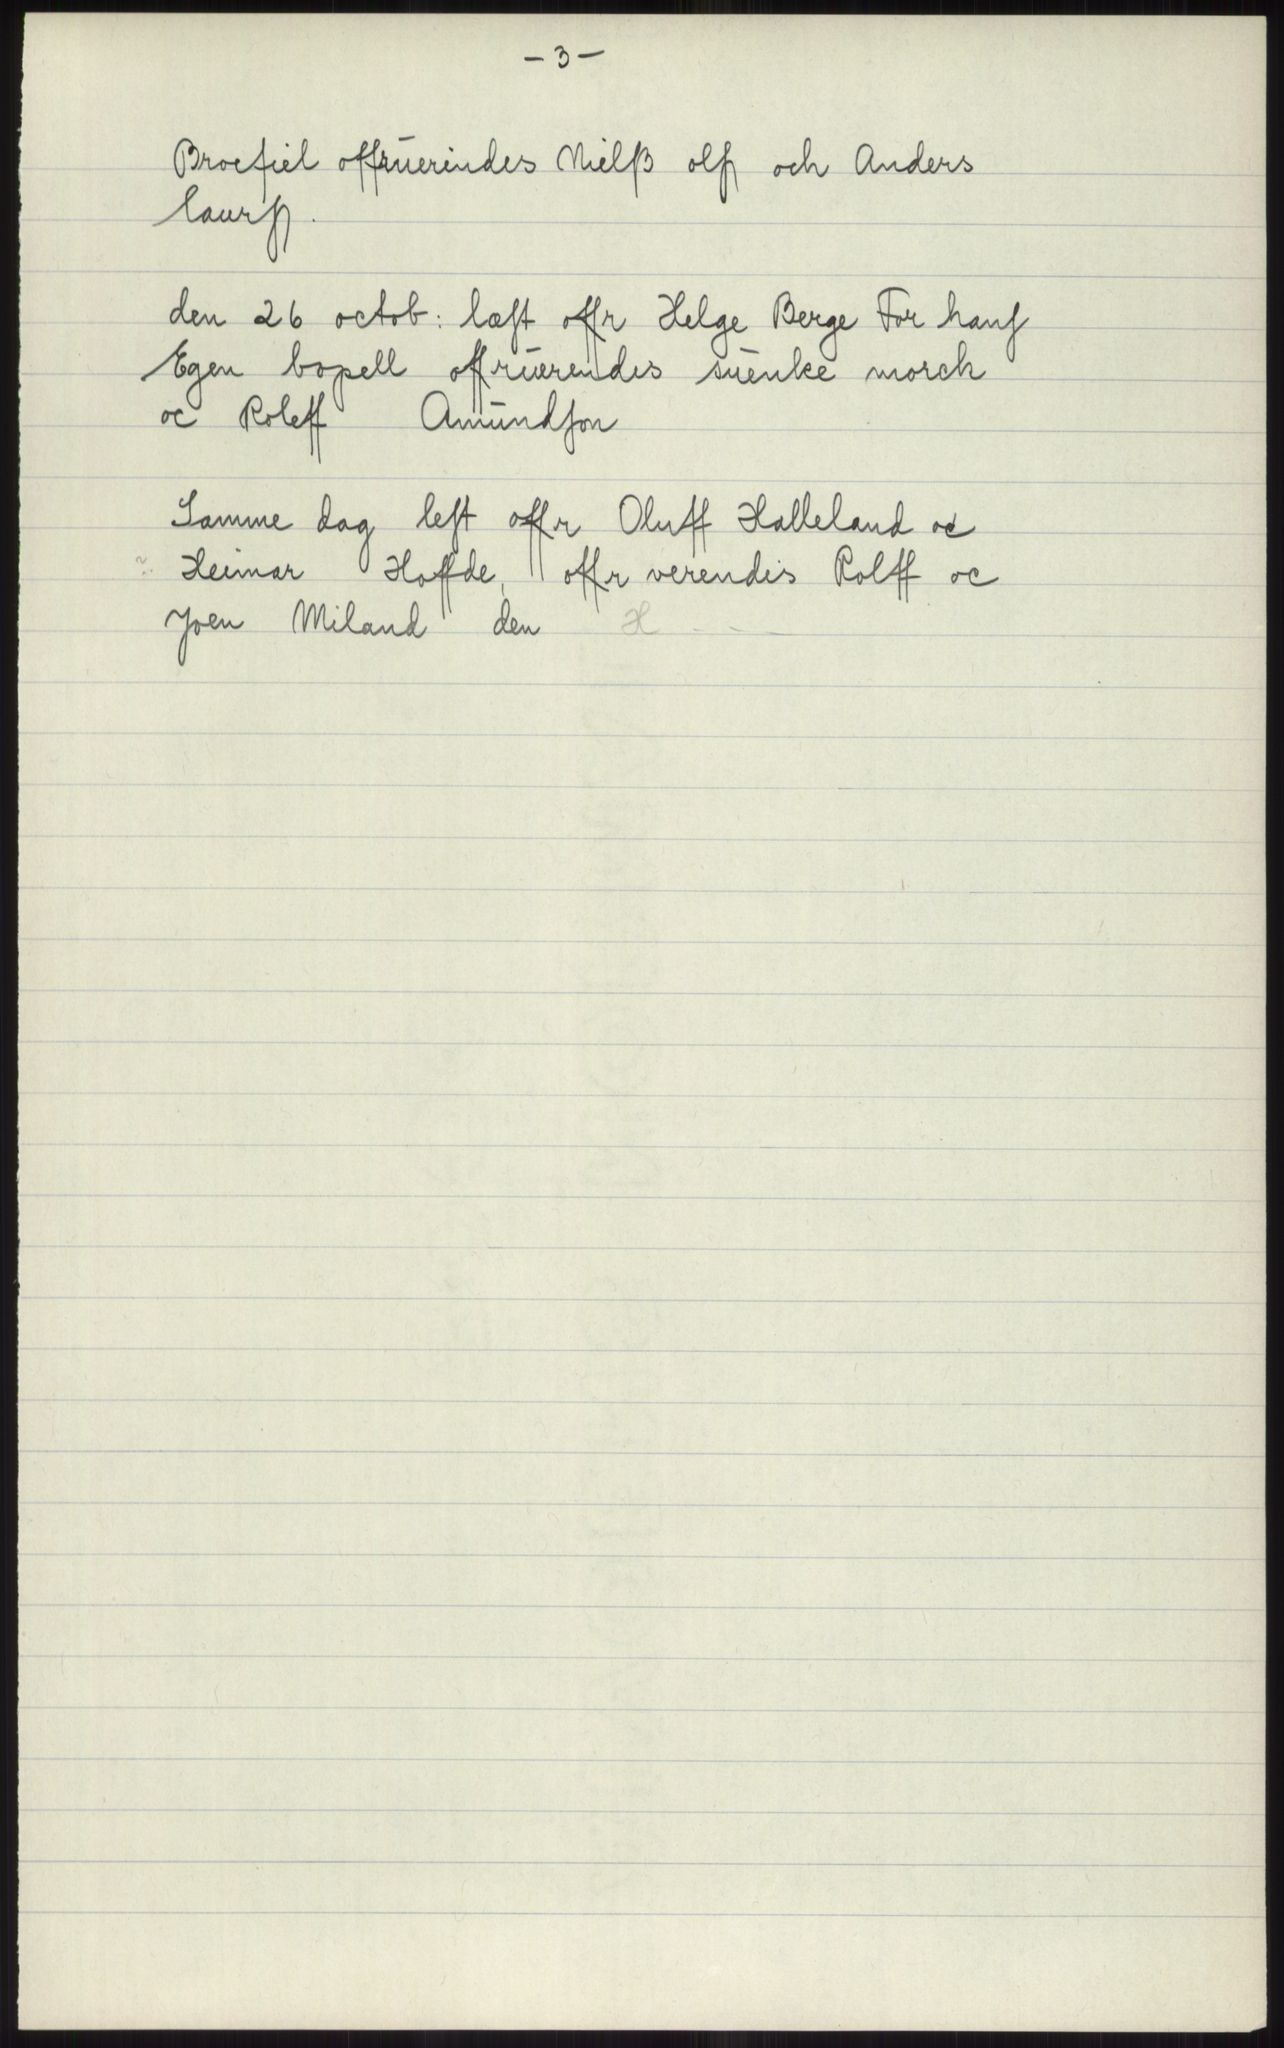 - 3 -
Brocfiel offrüerindes Nielß olſ och Anders
laurſ.
den 26 octob: læſt offr Helge Berge For hanſ
Egen bopell offrüærendes süenke morck
oc Roleff Amündſon
Samme dag leſt offr Oluff Halleland oc
Heimar Hoffde, offr verendis Rolff oc
Joen Miland den H - - -